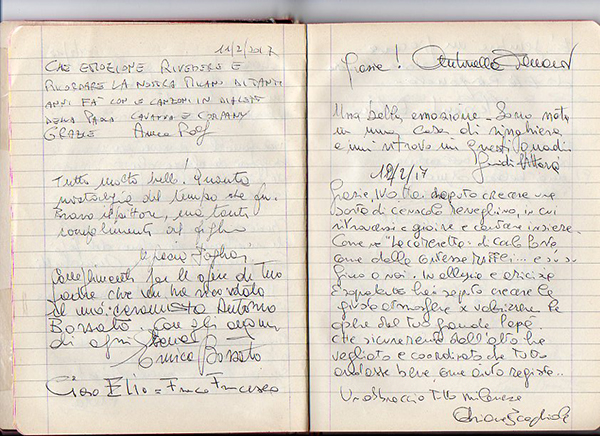 11/2/2017
CHE EMOZIONE RIVEDERE E
RICORDARE LA NOSTRA MILANO DI TANTI
ANNI FA CON LE CANZONI IN DIALETTO
DELLA PAOLA E COMPANY
GRAZIE Anna
Tutto molto bello! Quanta
nostalgia del tempo che fu.
Bravo il pittore, ma tanti
complimenti al figlio
Complimenti per le opere di tuo
padre che mi ha ricordato
il mio: ceramista Antonio
Bossato. Con gli auguri
di ogni bene!
Enrica Bossato
Ciao Elio = Franco Francesco
Grazie! Antonella
Una bella emozione. Sono nata
in una casa di ringhiera
e mi ritrovo in questi quadri.
12/2/17
Grazie, hai saputo creare una
sorta di cenacolo meneghino, in cui
ritrovarsi e gioire e cantare insieme.
Come ne "La cameretta" di Carlo Porta,
come dalla contessa Maffei... e
fino a noi. In allegria e amicizia.
E soprattutto hai saputo creare la
giusta atmosfera x valorizzare le
opere del tuo grande Papà
che sicuramente dall'alto ha
vegliato e coordinato che tutto
andasse bene, come aiuto regista..
Un abbraccio tutto milanese
Chiara